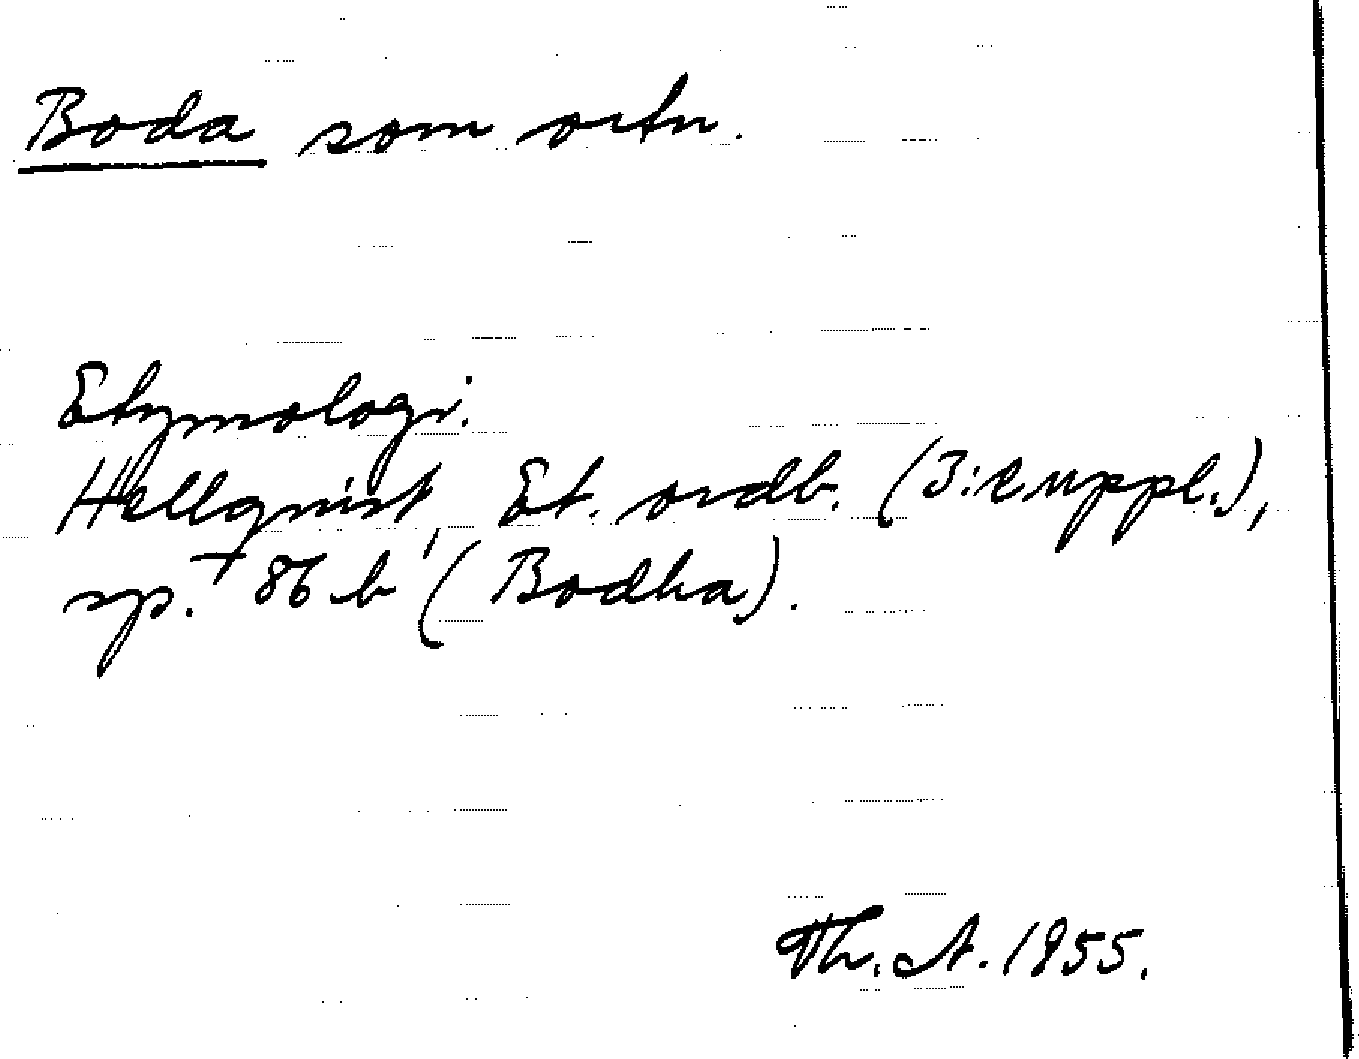 Boda som ortn.
Etymologi.
Hellquist, Et. ordb. (3:e uppl.),
sp. 86 b (Bodha).
Th. A. 1955.